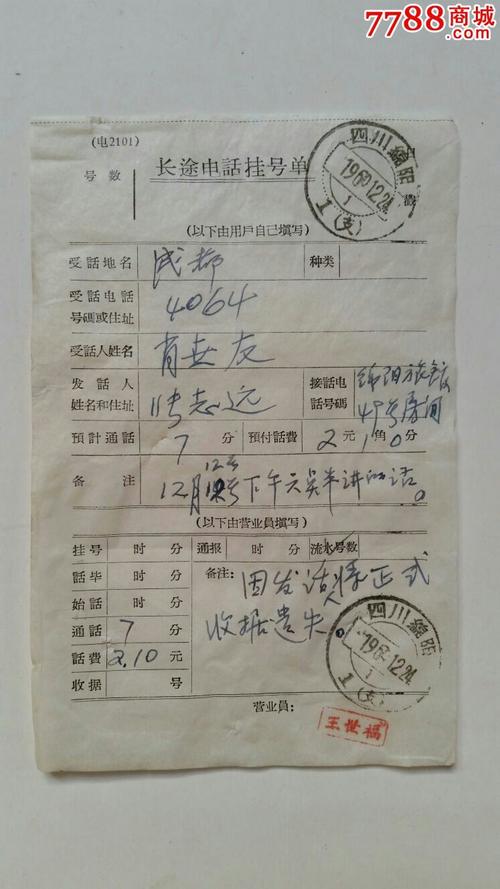 7788商城
(电2101)
号数
长途电話挂号单
四川綿阳
1960.12.24
1
1(支)
(以下由用戶自己填写)
受話地名 成都 种类
受話电話号碼或住址 4064
受話人姓名 肖世友
发話人姓名和住址 张志远 接話电話号碼 绵阳旅舍 49号房间
預計通話 7 分 預付話費 2 元 1 角 0 分
备注 12月 12号下午六点半讲的话。
(以下由营业員填写)
挂号 时 分 通报 时 分 流水号数
話毕 时 分 备注: 因发话人将正式
始話 时 分 收据遗失。
通話 7 分
話費 2.10 元
收据 号
四川綿阳
196 .12.24
1
1(支)
营业員:
王世福